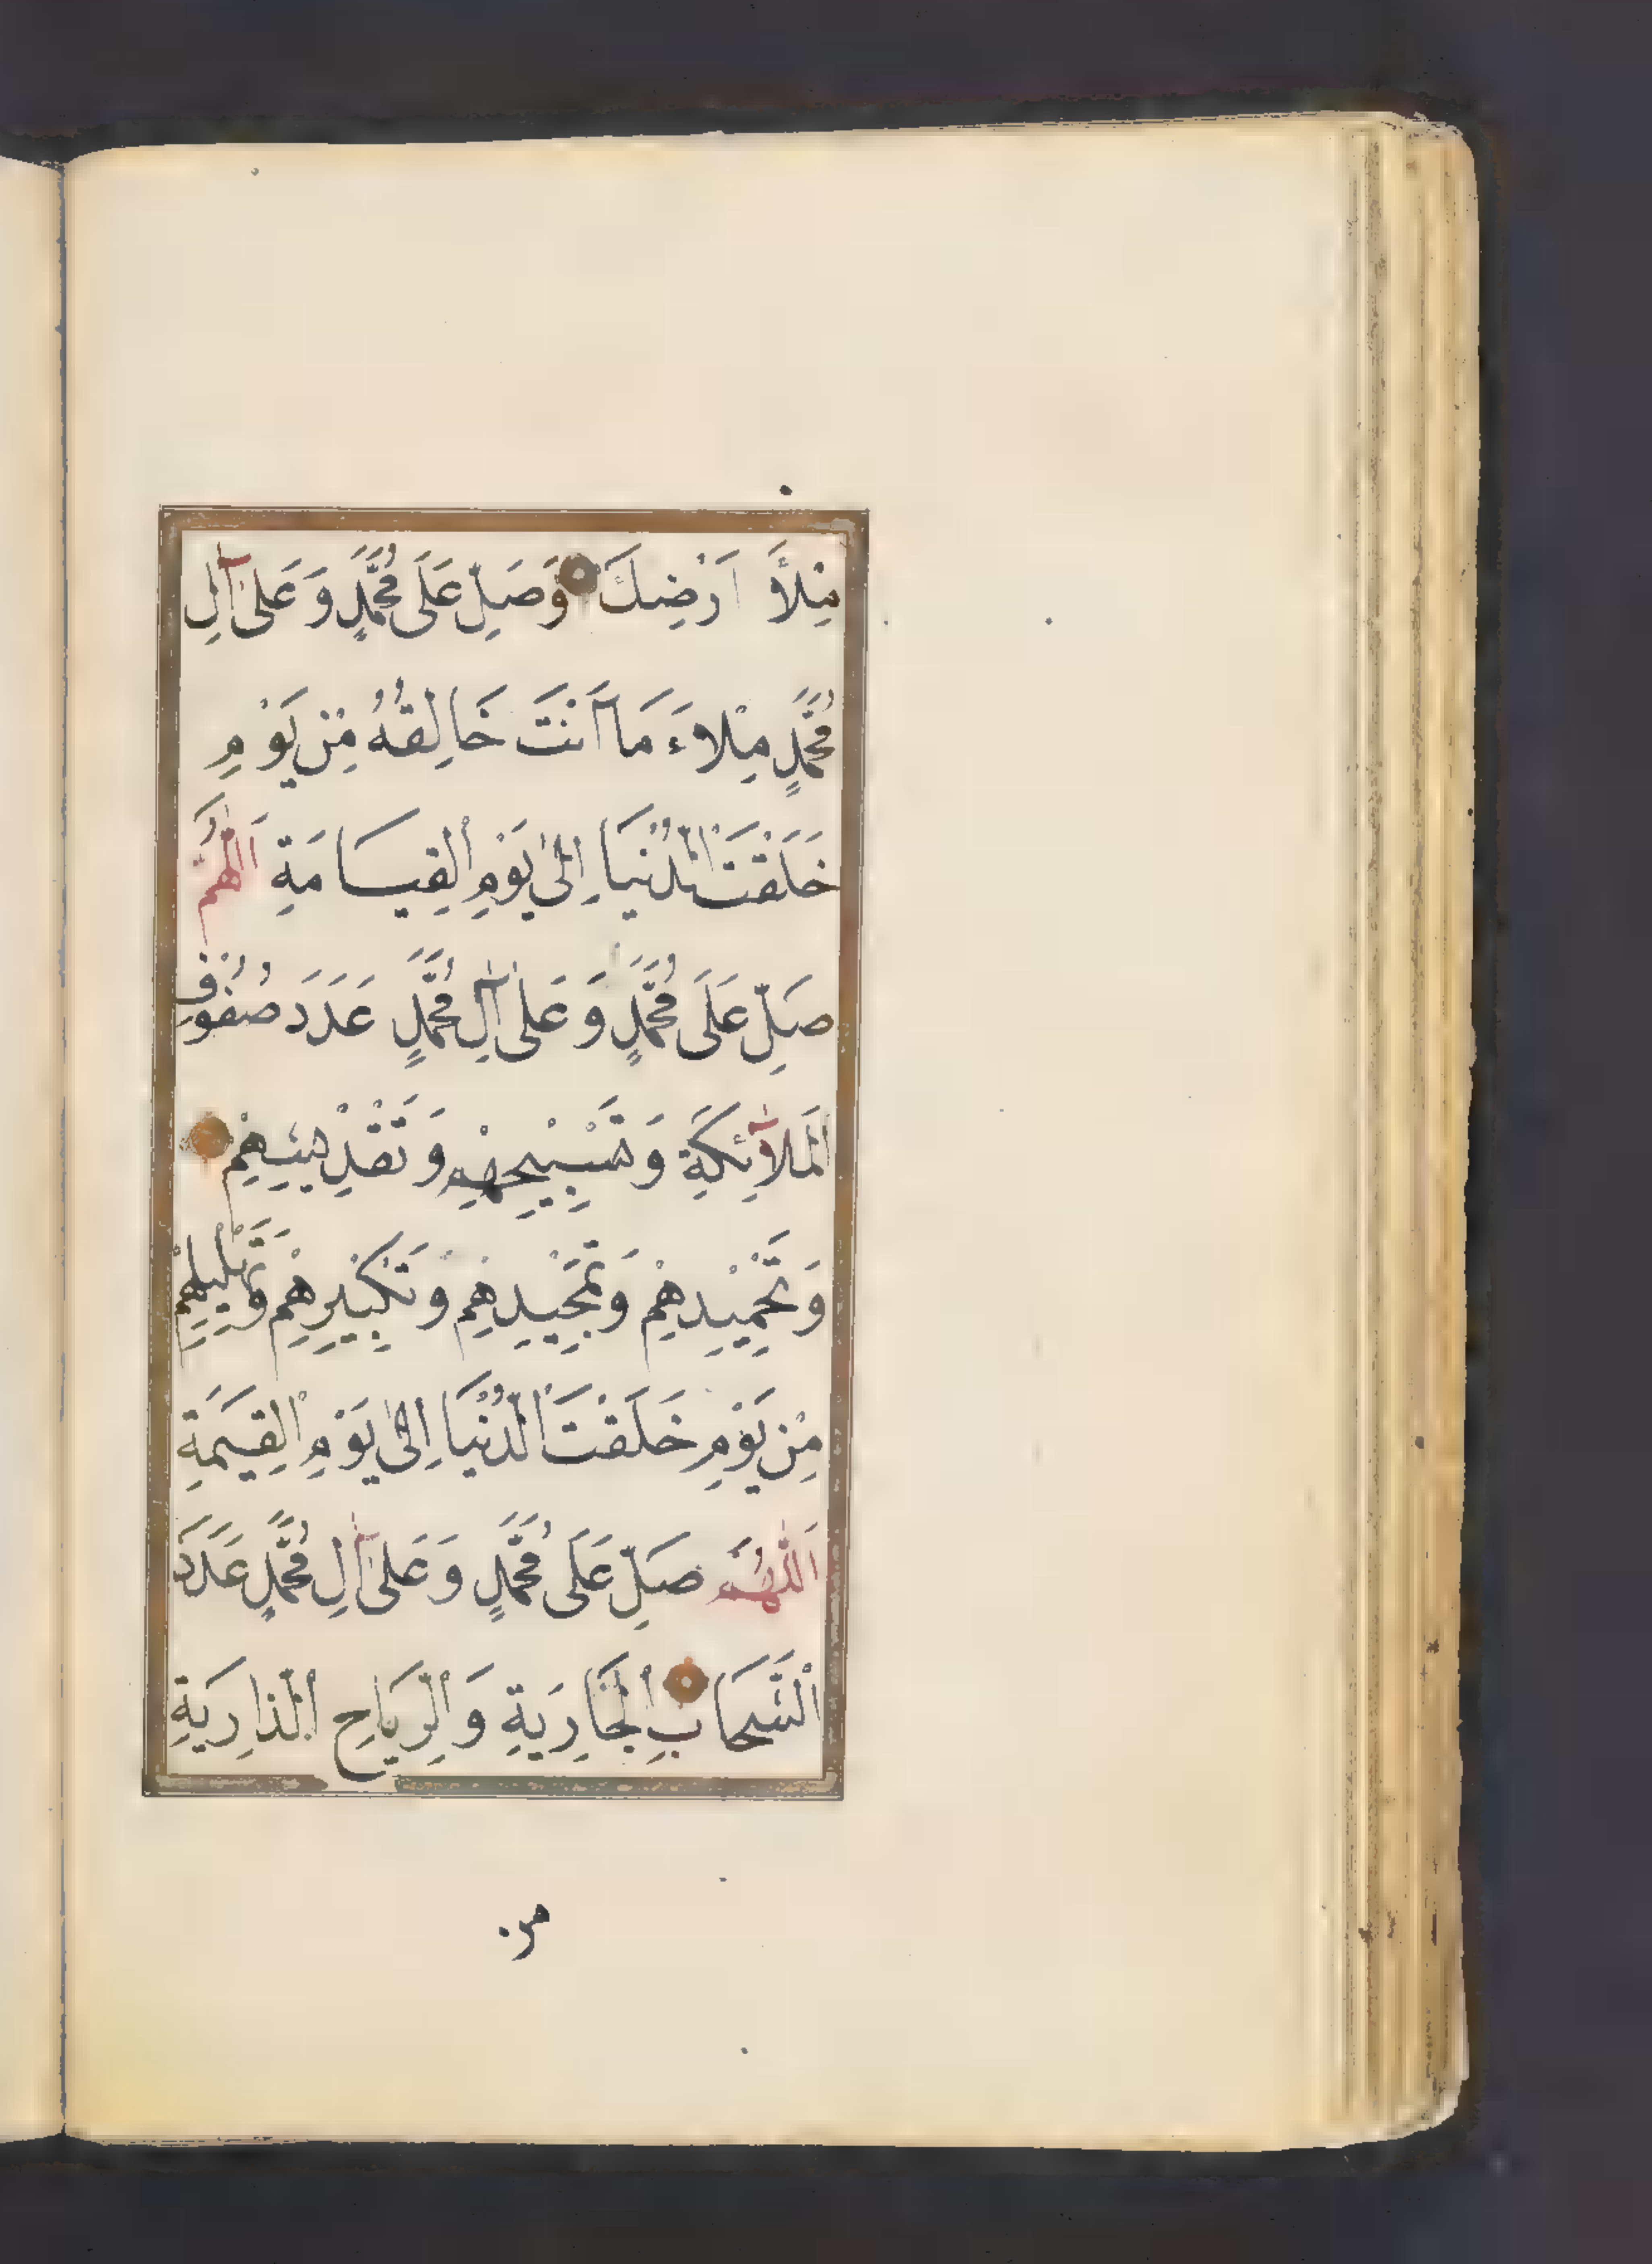 مِلْأَ اَرْضِكَ وَصَلِّ عَلَى مُحَمَّدٍ وَعَلٰى آلِ
مُحَمَّدٍ مِلْاءَ مَا اَنْتَ خَالِقُهُ مِنْ يَوْمِ
خَلَقْتَ الدُّنْيَا اِلٰى يَوْمِ الْقِيَامَةِ اَللّٰهُمَّ
صَلِّ عَلَى مُحَمَّدٍ وَعَلٰى اٰلِ مُحَمَّدٍ عَدَدَ صُفُوْفِ
الْمَلآئِكَةِ وَتَسْبِيْحِهِمْ وَتَقْدِيْسِهِمْ
وَتَحْمِيْدِهِمْ وَتَمْجِيْدِهِمْ وَتَكْبِيْرِهِمْ وَتَهْلِيْلِهِمْ
مِنْ يَوْمِ خَلَقْتَ الدُّنْيَا اِلٰى يَوْمِ الْقِيٰمَةِ
اَللّٰهُمَّ صَلِّ عَلَى مُحَمَّدٍ وَعَلٰى آلِ مُحَمَّدٍ عَدَدَ
الْسَّحَابِ الْجَارِيَةِ وَالْرِيَاحِ الْذَّارِيَةِ
من